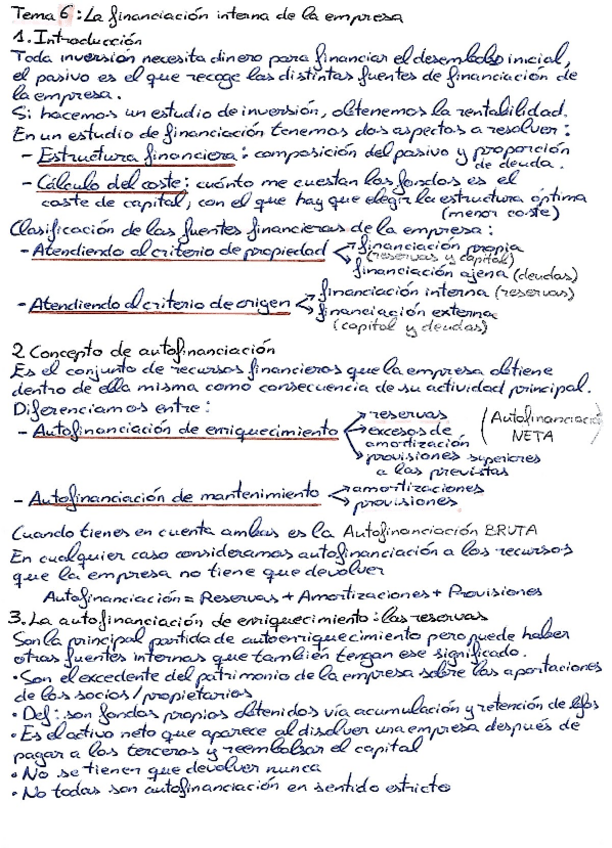 Tema 6: La financiación interna de la empresa
1. Introducción
Toda inversión necesita dinero para financiar el desembolso inicial,
el pasivo es el que recoge las distintas fuentes de financiación de
la empresa.
Si hacemos un estudio de inversión, obtenemos la rentabilidad.
En un estudio de financiación tenemos dos aspectos a resolver:
- Estructura financiera: composición del pasivo y proporción
de deuda.
- Cálculo del coste: cuánto me cuestan los fondos es el
coste de capital, con el que hay que elegir la estructura óptima
(menor coste)
Clasificación de las fuentes financieras de la empresa:
- Atendiendo al criterio de propiedad
financiación propia
(reservas y capital)
financiación ajena (deudas)
- Atendiendo al criterio de origen
financiación interna (reservas)
financiación externa
(capital y deudas)
2 Concepto de autofinanciación
Es el conjunto de recursos financieros que la empresa obtiene
dentro de ella misma como consecuencia de su actividad principal.
Diferenciamos entre:
- Autofinanciación de enriquecimiento
reservas
excesos de
amortización
provisiones superiores
a las previstas
(Autofinanciación
NETA)
- Autofinanciación de mantenimiento
amortizaciones
provisiones
Cuando tienes en cuenta ambas es la Autofinanciación BRUTA
En cualquier caso consideramos autofinanciación a los recursos
que la empresa no tiene que devolver
Autofinanciación = Reservas + Amortizaciones + Provisiones
3. La autofinanciación de enriquecimiento: las reservas
Son la principal partida de autoenriquecimiento pero puede haber
otras fuentes internas que también tengan ese significado.
• Son el excedente del patrimonio de la empresa sobre las aportaciones
de los socios/propietarios
• Def: son fondos propios obtenidos vía acumulación y retención de Bfos
• Es el activo neto que aparece al disolver una empresa después de
pagar a los terceros y reembolsar el capital
• No se tienen que devolver nunca
• No todas son autofinanciación en sentido estricto